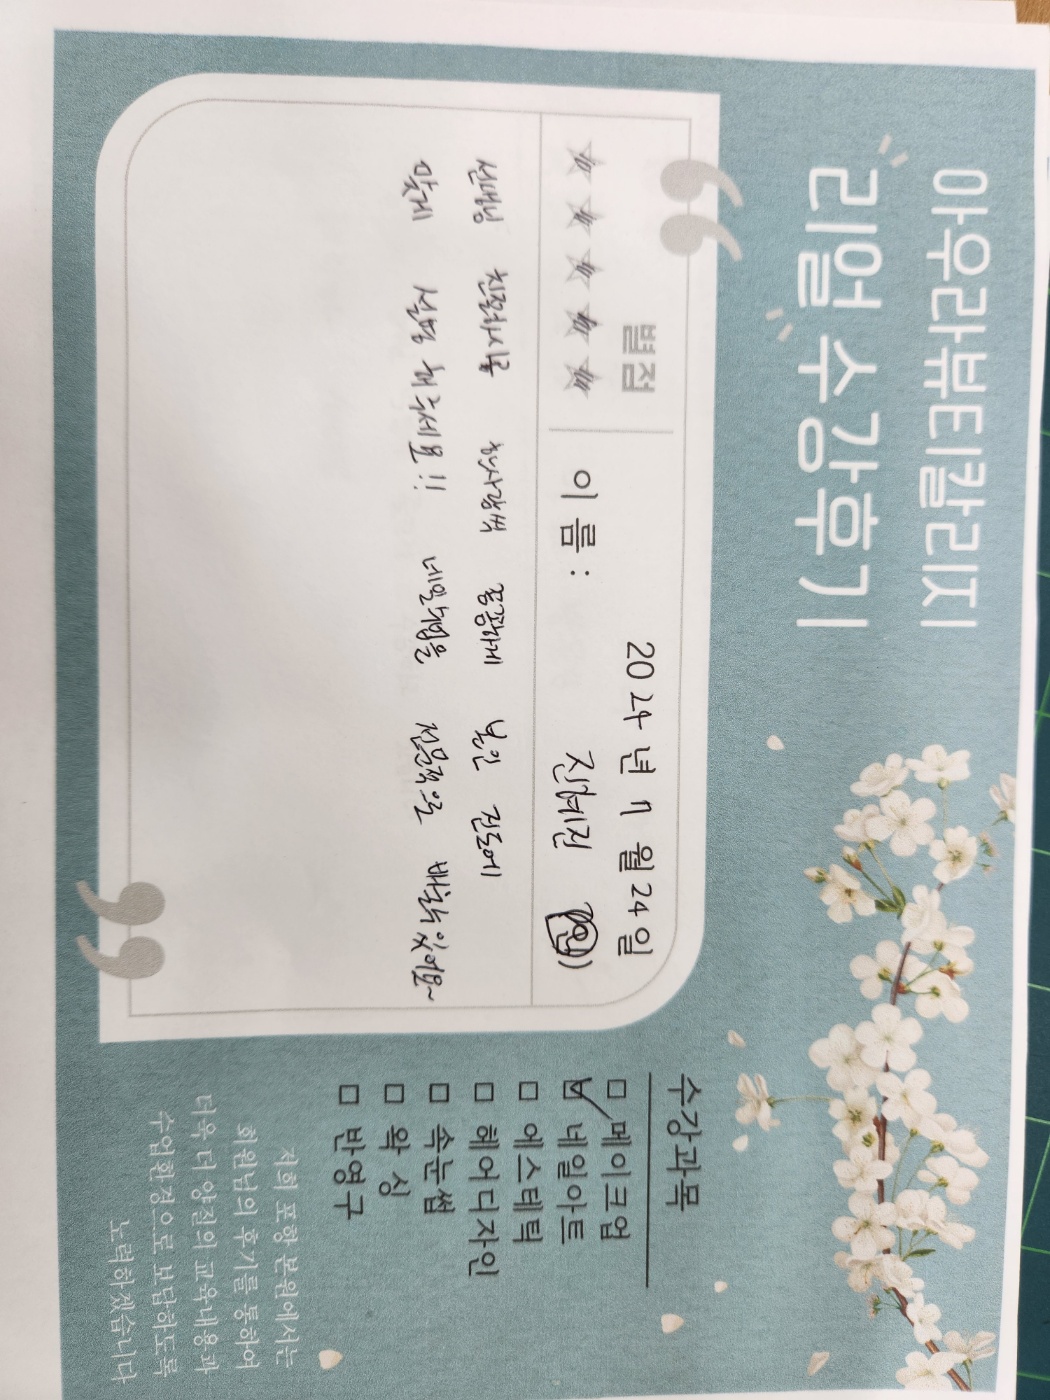 아우라뷰티칼리지
리얼 수강후기
별점
2024년 11월 24일
이름 :
수강과목
메이크업
네일아트
에스테틱
헤어디자인
속눈썹
왁싱
반영구
선생님 친절하시고 한사람씩 꼼꼼하게 본인 진도에
맞게 설명 해주세요!! 네일누첩을 전문적으로 배울수있어요~
저희 포항 본원에서는
회원님의 후기를 통하여
더욱 더 양질의 교육내용과
수업환경으로 보답하도록
노력하겠습니다